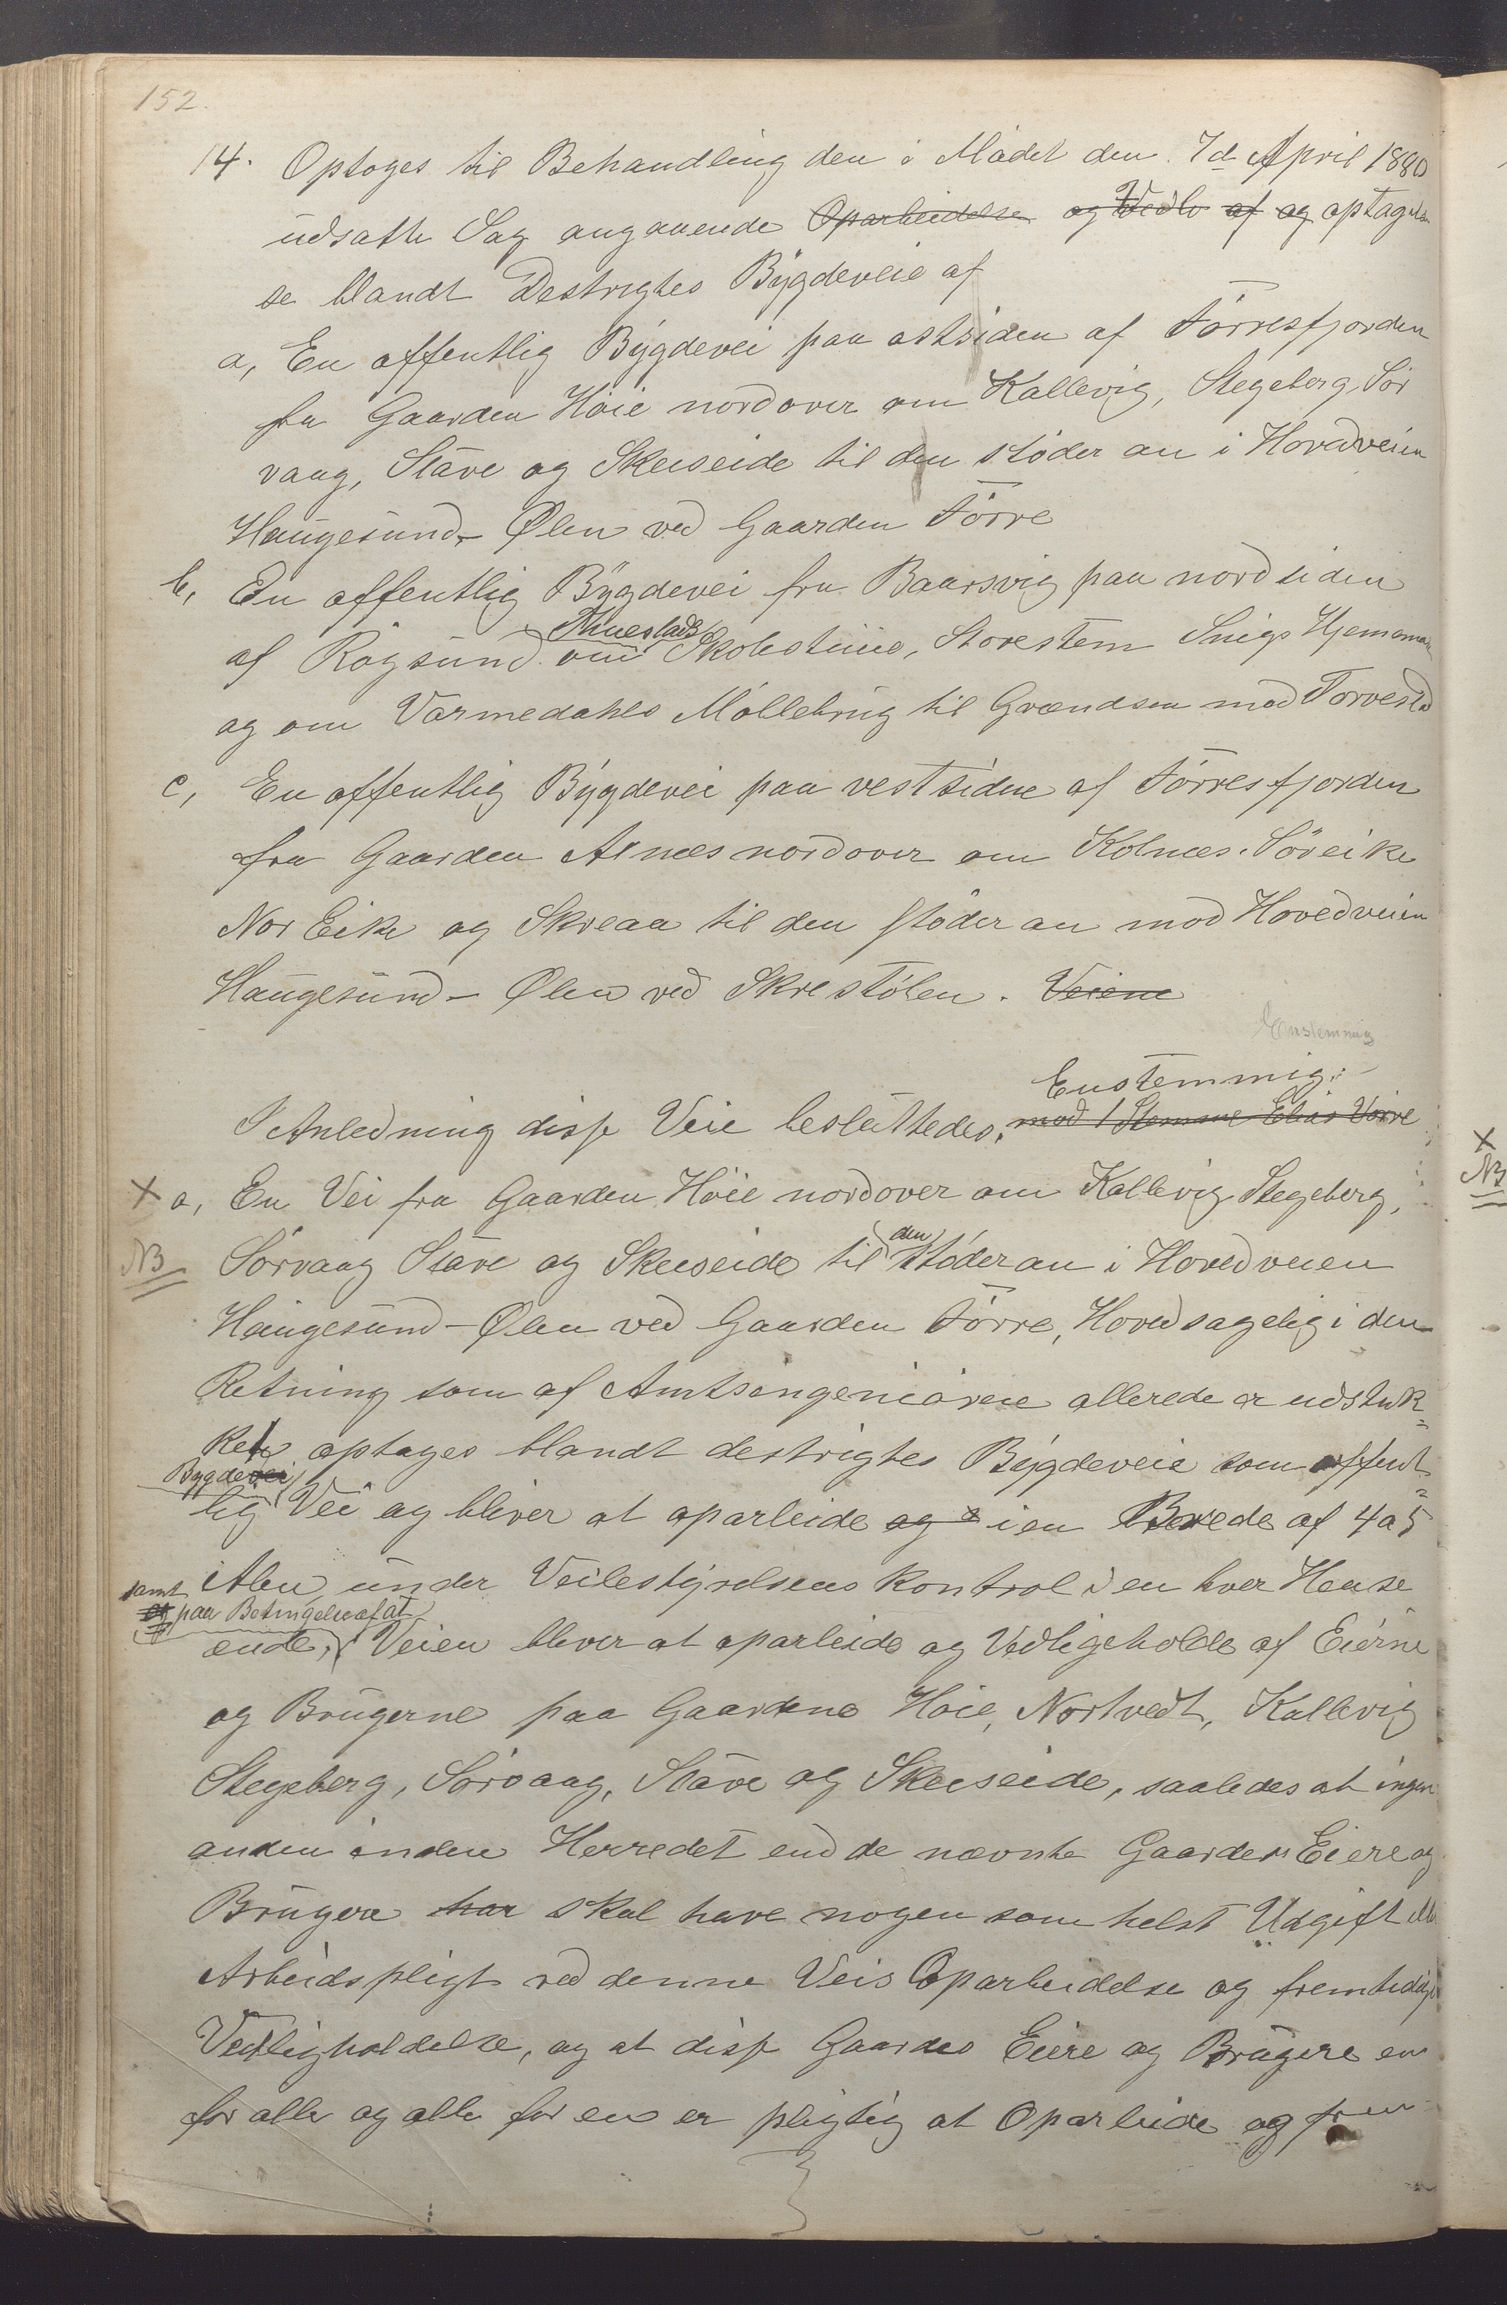 152.
14. Optoges til Behandling den i Mødet den 7de April 1880
udsatte Sag angaaende Oparbeidelse og Vedli af og optagel
se blandt Destrigtes Bygdeveie af
a, En offentlig Bygdevei paa østsiden af Førresfjorden
fra Gaarden Høie nordover om Kallevig, Stegeberg, Sør
vaag, Stave og Skeiseide til den støder an i Hovedveien
Haugesund - Ølen ved Gaarden Førre
b, En offentlig Bygdevei fra Baarsvig paa nordsiden
af Røgsund om Skolestuue, Storestem Snigs Hjemema
og om Varmedahls Møllebrug til Grændsen mod Torvestad
c, En offentlig Bygdevei paa vestsiden af Førresfjorden
fra Gaarden Alnæs nordover om Kolnæs. Søreike
Nor Eike og Skreaa til den støder an mod Hovedveien
Haugesund - Ølen ved Skrestølen. Veiene
Enstemmig
Enstemmig:
I Anledning disse Veie besluttedes, mod 1 Stemme Elias Vorre
X a, En Vei fra Gaarden Høie nordover om Kallevig Stegeberg,
NB Sørvaag Stave og Skeiseide til den støder an i Hovedveien
Haugesund - Ølen ved Gaarden Førre, Hovedsagelig i den
Retning som af Amtsingeniøren allerede er udstuk-
ket optages blandt destrigtes Bygdeveie som offent-
Bygdevei
lig Vei og bliver at oparbeide og i en Brede af 4 a 5
Alen under Veibestyrelsens Kontrol i en hver Hense
samt og paa Betingelse af at
ende, Veien bliver at oparbeide og Vedligeholde af Eierne
og Brugerne paa Gaardene Høie, Nortvedt, Kallevig
Stegeberg, Sørvaag, Stave og Skeiseide, saaledes at ingen
anden inden Herredet end de nævnte Gaardes Eiere og
Brugere har skal have nogen som helst Udgift eller
Arbeidspligt ved denne Veis Oparbeidelse og fremtidige
Vedligholdelse, og at disse Gaardes Eiere og Brugere en
for alle og alle for en er pligtig at Oparbeide og frem-
X
NB